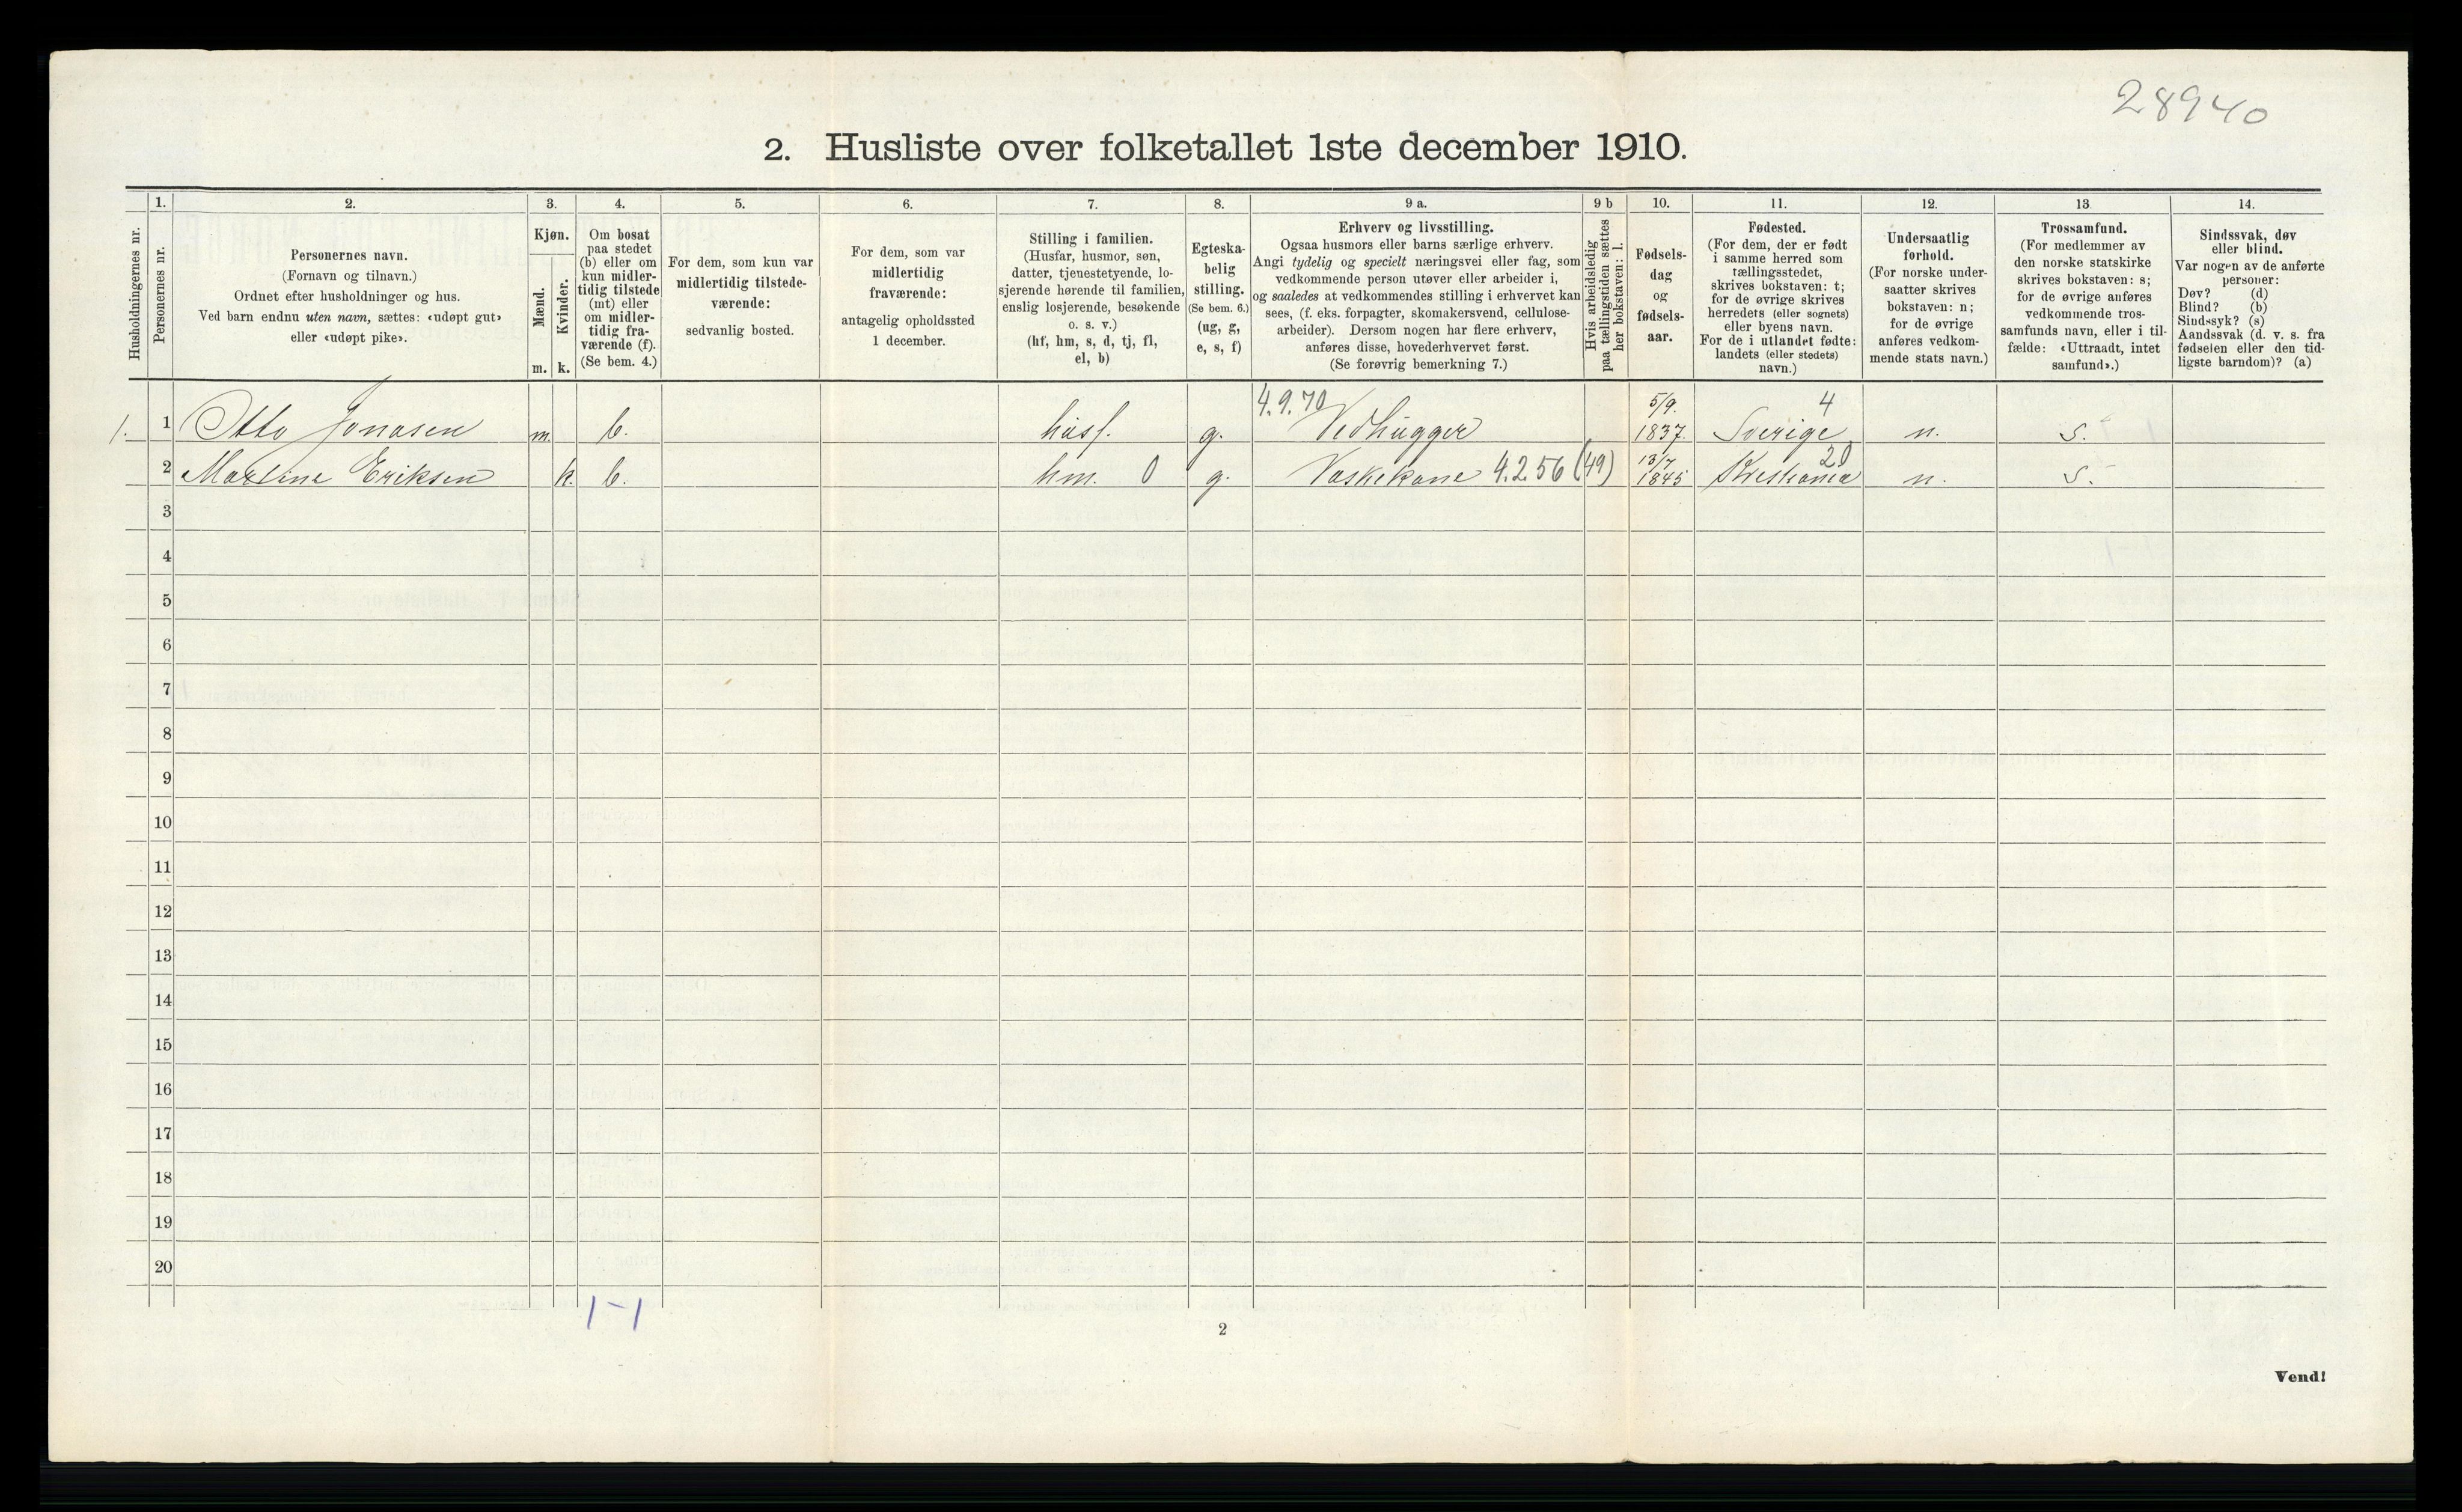 28940
2. Husliste over folketallet 1ste december 1910.
Husholdningernes nr.
1.
Personernes nr.
2.
Personernes navn.
(Fornavn og tilnavn.)
Ordnet efter husholdninger og hus.
Ved barn endnu uten navn, sættes: «udøpt gut»
eller «udøpt pike».
3.
Kjøn.
Mænd.
Kvinder.
m. k.
4.
Om bosat
paa stedet
(b) eller om
kun midler-
tidig tilstede
(mt) eller
om midler-
tidig fra-
værende (f).
(Se bem. 4.)
5.
For dem, som kun var
midlertidig tilstede-
værende:
sedvanlig bosted.
6.
For dem, som var
midlertidig
fraværende:
antagelig opholdssted
1 december.
7.
Stilling i familien.
(Husfar, husmor, søn,
datter, tjenestetyende, lo-
sjerende hørende til familien,
enslig losjerende, besøkende
o. s. v.)
(hf, hm, s, d, tj, fl,
el, b)
8.
Egteska-
belig
stilling.
(Se bem. 6.)
(ug, g,
e, s, f)
9 a.
Erhverv og livsstilling.
Ogsaa husmors eller barns særlige erhverv.
Angi tydelig og specielt næringsvei eller fag, som
vedkommende person utøver eller arbeider i,
og saaledes at vedkommendes stilling i erhvervet kan
sees, (f. eks. forpagter, skomakersvend, cellulose-
arbeider). Dersom nogen har flere erhverv,
anføres disse, hovederhvervet først.
(Se forøvrig bemerkning 7.)
9 b
Hvis arbeidsledig
paa tællingstiden sættes
her bokstaven: l.
10.
Fødsels-
dag
og
fødsels-
aar.
11.
Fødested.
(For dem, der er født
i samme herred som
tællingsstedet,
skrives bokstaven: t;
for de øvrige skrives
herredets (eller sognets)
eller byens navn.
For de i utlandet fødte:
landets (eller stedets)
navn.)
12.
Undersaatlig
forhold.
(For norske under-
saatter skrives
bokstaven: n;
for de øvrige
anføres vedkom-
mende stats navn.)
13
Trossamfund.
(For medlemmer av
den norske statskirke
skrives bokstaven: s;
for de øvrige anføres
vedkommende tros-
samfunds navn, eller i til-
fælde: «Uttraadt, intet
samfund».)
14.
Sindssvak, døv
eller blind.
Var nogen av de anførte
personer:
Døv? (d)
Blind? (b)
Sindssyk? (s)
Aandssvak (d. v. s. fra
fødselen eller den tid-
ligste barndom)? (a)
4.9.70 5/9. 4
1. 1 Otto Jonasen m. b. husf. g. Vedhugger 1837. Sverige n. s.
13/7 20
2 Martine Eriksen k. b. hm. 0 g. Vaskekone 4.2.56 (49) 1845 Kristiania n. s.
3
4
5
6
7
8
9
10
11
12
13
14
15
16
17
18
19
20
1-1
2
Vend!